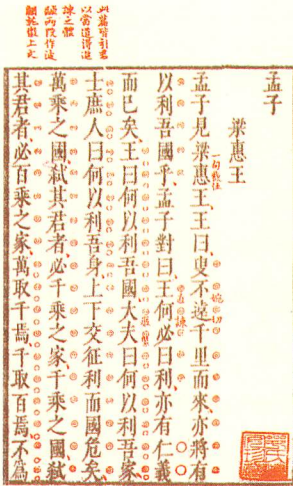 此篇皆引君
以當道得進
諫之體
孟子
梁惠王
孟子見梁惠王、王曰、叟不遠千里而來、亦將有
以利吾國乎、孟子對曰、王何必曰利、亦有仁義
而已矣、王曰何以利吾國、大夫曰何以利吾家、
士庶人曰何以利吾身、上下交征利而國危矣、
萬乘之國、弒其君者、必千乘之家、千乘之國、弒
其君者、必百乘之家、萬取千焉、千取百焉、不爲